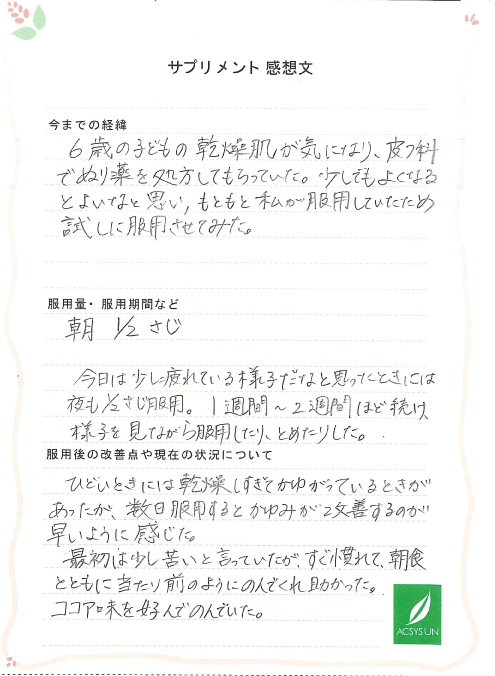 サプリメント 感想文
今までの経緯
6歳の子どもの乾燥肌が気になり、皮フ科
でぬり薬を処方してもらっていた。少しでもよくなる
とよいなと思い，もともと私が服用していたため
試しに服用させてみた。
服用量・服用期間など
朝 1/2 さじ
今日は少し疲れている様子だなと思ったときには
夜も1/2さじ服用。1週間～2週間ほど続け、
様子を見ながら服用したり、とめたりした。
服用後の改善点や現在の状況について
ひどいときには乾燥しすぎてかゆがっているときが
あったが、数日服用するとかゆみが改善するのが
早いように感じた。
最初は少し苦いと言っていたが、すぐ慣れて、朝食
とともに当たり前のようにのんでくれ助かった。
ココア味を好んでのんでいた。
ACSYSUN